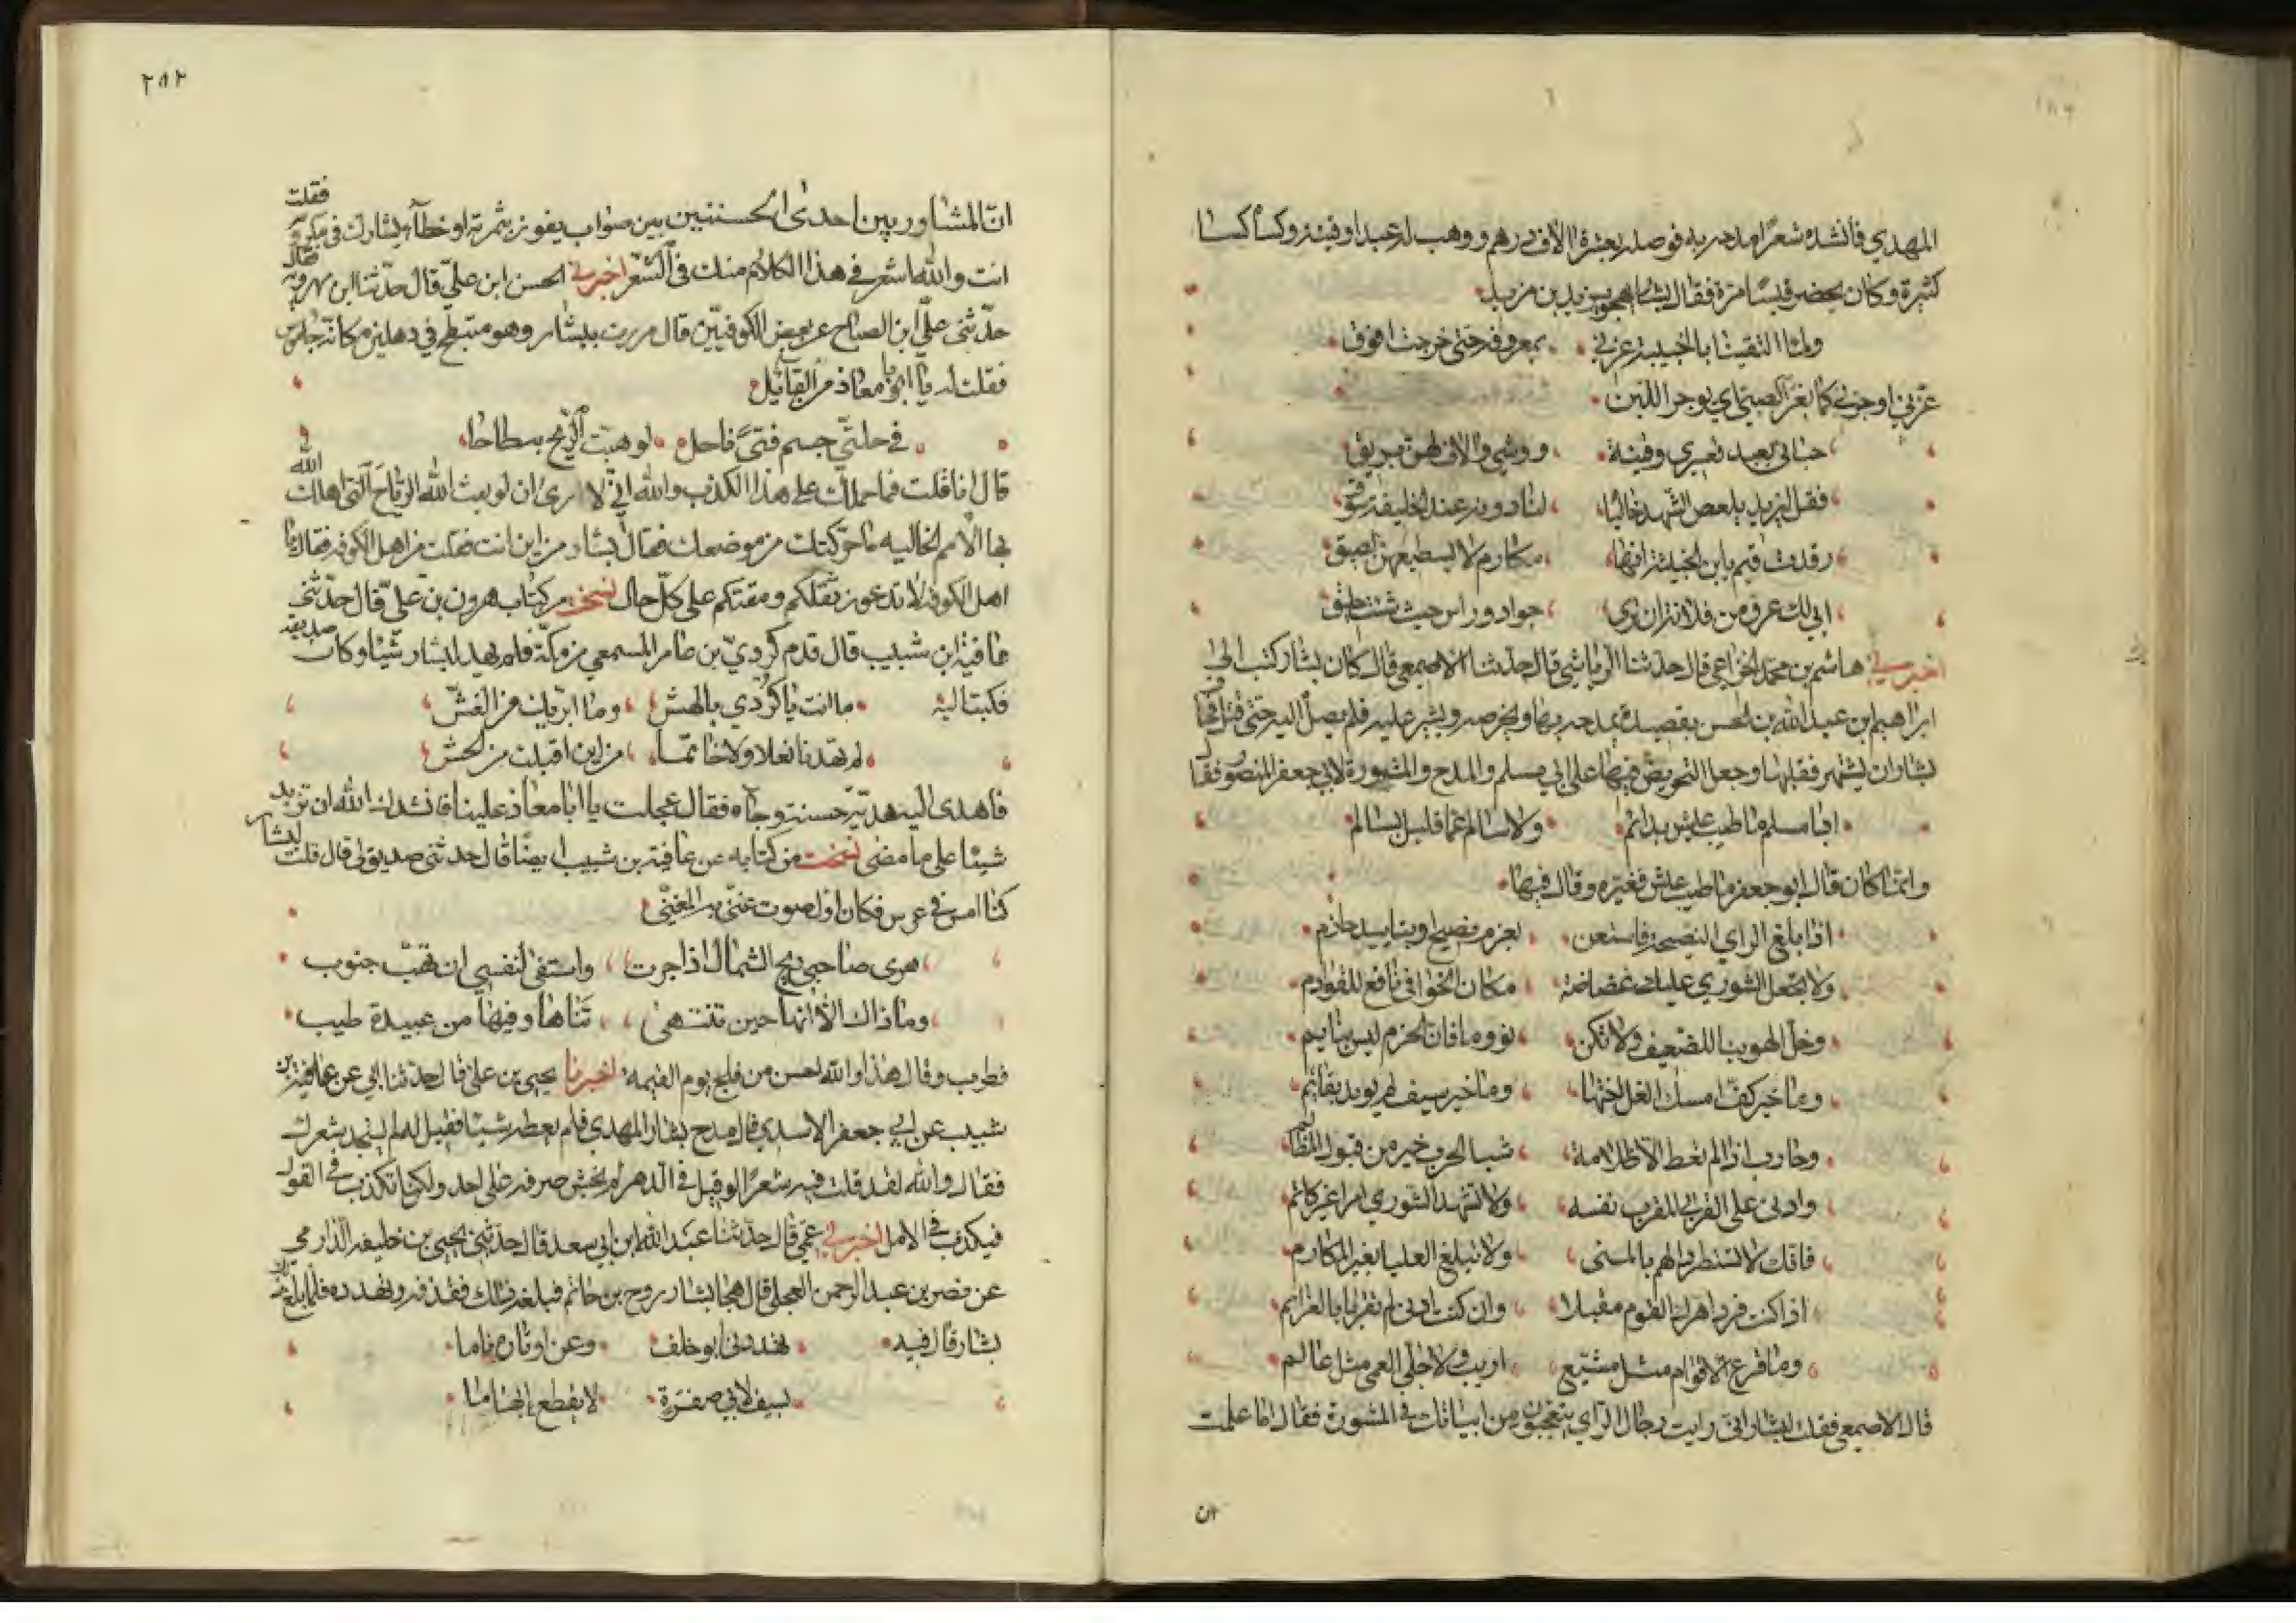 المهدي فأنشده شعرا مدحه به فوصله بعشرة الاف درهم ووهب له عبدا وقينة وكساه كسا
كثيرة وكان يحضر قيسا مرة فقال بشار يهجو يزيد بن مزيد
ولما التقينا بالخبيبة عزني بمعروفه حتى خرجت افوق
غرني اوجرني كما يغر الصبي اي يوجر اللبن
حباني بعبد قعسري وقينة ووشي والاف لهن بريق
فقل ليزيد يلعص الشهد خاليا لنا دونه عند الخليفة سوق
رقدت فنم يابن الخبيثة انها مكارم لا يستطيعهن لصيق
ابى لك عرق من فلانة ان ترى جواد وراس حيث شئت حليق
اخبرني هاشم بن محمد الخزاعي قال حدثنا الرياشي قال حدثنا الاصمعي قال كان بشار كتب الى
ابراهيم ابن عبد الله بن الحسن بقصيدة يمدحه بها ويحرضه ويشير عليه فلم يصل اليه حتى قتل وخاف
بشار ان يشتهر فقلبها وجعل التحريض فيها على ابي مسلم والمدح والمشورة لابي جعفر المنصور فقال
ابا مسلم ما طيب عيش بدائم ولا سالم عما قليل بسالم
وانما كان قال ابو جعفر ما طيب عيش فغيره وقال فيها
اذا بلغ الراي النصيحة فاستعن بعزم نصيح وبتاييد حازم
ولا تجعل الشورى عليك غضاضة مكان الخوافي نافع للقوادم
وخل الهوينا للضعيف ولا تكن نووما فان الحزم ليس بنايم
وما خير كف امسك الغل اختها وما خير سيف لم يويد بقائم
وحارب اذا لم تعط الا ظلامة شبا الحرب خير من قبول المظالم
وادن على القربى المقرب نفسه ولا تشهد الشورى امرا غير كاتم
فانك لا تستطرد الهم بالمنى ولا تبلغ العليا بغير المكارم
اذا كنت فردا هرك القوم مقبلا وان كنت ادنى لم تفز بالعزايم
وما قرع الاقوام مثل مشيع اريب ولا جلى العمى مثل عالم
قال الاصمعي فقلت لبشار اني رايت رجال الراي يتعجبون من ابياتك في المشورة فقال اما علمت
ان
٢٨٢
ان المشاور بين احدى الحسنيين بين صواب يفوز بثمرته او خطأ يشارك في مكروهه فقلت
انت والله اشعر في هذا الكلام منك في الشعر اخبرني الحسن ابن علي قال حدثنا ابن مهرويه قال
حدثني علي ابن الصباح عن بعض الكوفيين قال مررت ببشار وهو متبطح في دهليزه كانه جاموس
فقلت له يا ابا معاذ من القائل
في حلتي جسم فتى ناحل لو هبت الريح به طاحا
قال انا قلت فما حملك على هذا الكذب والله اني لا ارى ان لو بعث الله الرياح التي اهلك الله
بها الامم الخاليه ما حركتك من موضعك فقال بشار من اين انت فقلت من اهل الكوفه فقال يا
اهل الكوفة لا تدعون ثقلكم ومقتكم على كل حال نسخت من كتاب هرون بن علي قال حدثني
عافية ابن شبيب قال قدم كردي بن عامر المسمعي من مكة فلم يهد لبشار شيئا وكان صديقه
فكتب اليه ما انت يا كردي بالهش وما ابريك من الغش
لم تهدنا نعلا ولا خاتما من اين اقبلت من الحش
فاهدى اليه هدية حسنة وجاه فقال عجلت يا ابا معاذ علينا فانشدك الله ان تزيد
شيئا على ما مضى نسخت من كتابه عن عافية بن شبيب ايضا قال حدثني صديق لي قال قلت لبشار
كنا امس في عرس فكان اول صوت غنى به المغني
هوى صاحبي ريح الشمال اذا جرت واشفى لنفسي ان تهب جنوب
وما ذاك الا انها حين تنتهي تناها وفيها من عبيدة طيب
فطرب وقال هذا والله احسن من فلج يوم القيمة اخبرنا يحيى بن علي قال حدثنا ابي عن عافية بن
شبيب عن ابي جعفر الاسدي قال مدح بشار المهدي فلم يعطه شيئا فقيل له لم يستجد شعرك
فقال والله لقد قلت فيه شعرا لو قيل في الدهر لم يخش صرفه على احد ولكنا نكذب في القول
فيكذب في الامل اخبرني عمي قال حدثنا عبد الله ابن ابي سعد قال حدثني يحيى بن خليفه الدارمي
عن نصر بن عبد الرحمن العجلي قال هجا بشار روح بن حاتم فبلغه ذلك فقذفه وتهدده فلما بلغ ذلك
بشار قال فيه تهددني ابو خلف وعن اوتاره ناما
بسيف لابي صفرة لا يقطع ابهاما